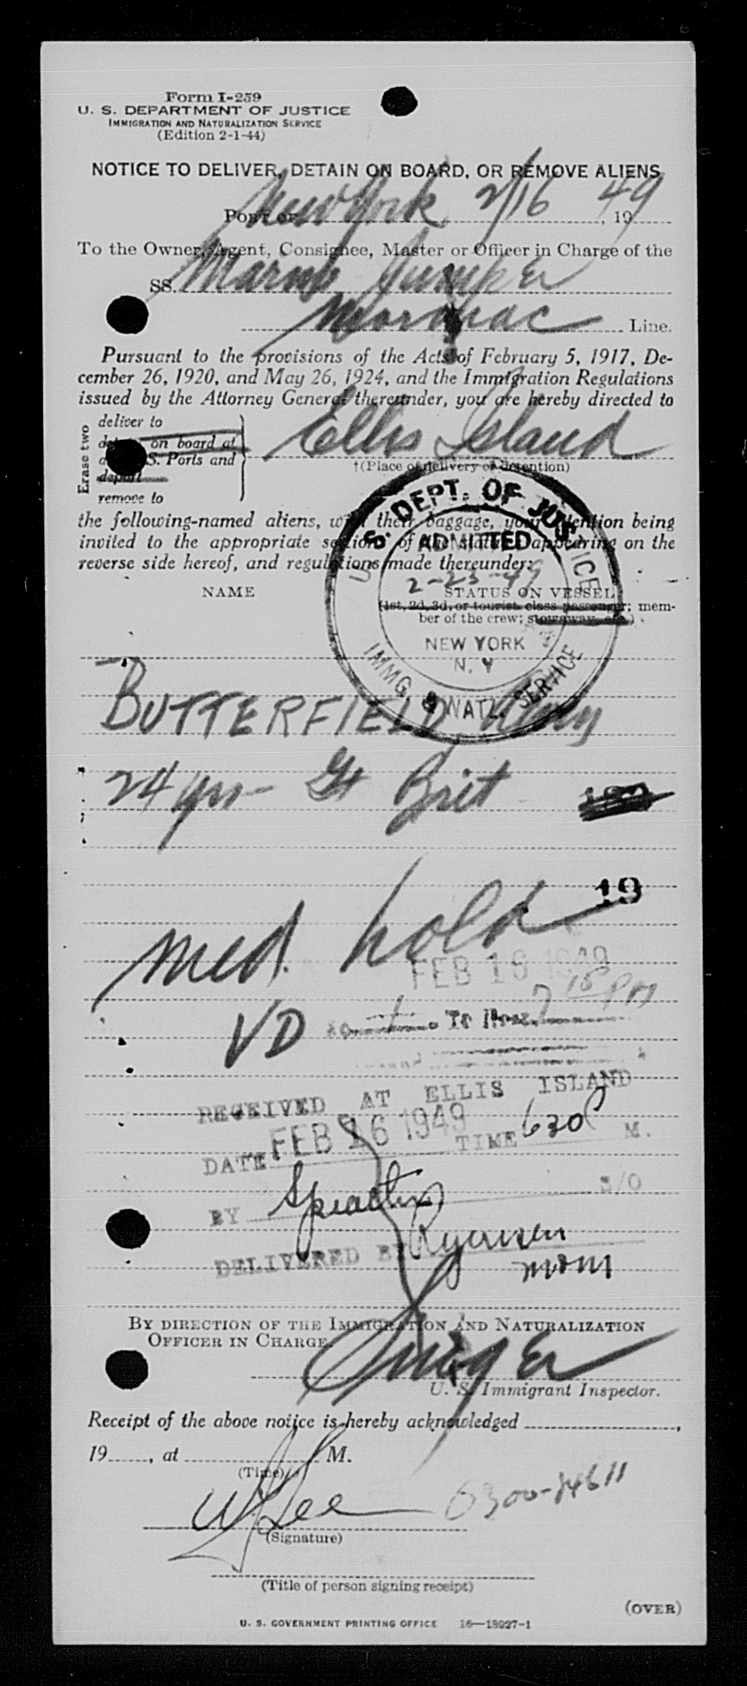 Form I-259
U. S. DEPARTMENT OF JUSTICE
IMMIGRATION AND NATURALIZATION SERVICE
(Edition 2-1-44)
NOTICE TO DELIVER, DETAIN ON BOARD, OR REMOVE ALIENS
Port of New York, 2/16, 19 49
To the Owner, Agent, Consignee, Master or Officer in Charge of the
SS. Marine Jumper
Line.
Pursuant to the provisions of the Acts of February 5, 1917, De-
cember 26, 1920, and May 26, 1924, and the Immigration Regulations
issued by the Attorney General thereunder, you are hereby directed to
Erase two
deliver to
detain on board at
all U.S. Ports and
depart
remove to
Ellis Island
†(Place of delivery or detention)
the following-named aliens, with their baggage, your attention being
invited to the appropriate sections of the statutes appearing on the
reverse side hereof, and regulations made thereunder:
U. S. DEPT. OF JUSTICE
ADMITTED
2-23-49
NEW YORK
N. Y
IMMG. & NATL. SERVICE
NAME
STATUS ON VESSEL
(1st, 2d, 3d, or tourist class passenger; mem-
ber of the crew; stowaway, etc.)
BUTTERFIELD
24 yrs Gt Brit
19
med. hold
FEB 1949
7 15 PM
VD
RECEIVED AT ELLIS ISLAND
DATE FEB 16 1949 TIME 630 P M.
BY
DELIVERED BY
BY DIRECTION OF THE IMMIGRATION AND NATURALIZATION
OFFICER IN CHARGE.
U. S. Immigrant Inspector.
Receipt of the above notice is hereby acknowledged
19, at M.
(Time)
W Lee
6300-84611
(Signature)
(Title of person signing receipt)
(OVER)
U. S. GOVERNMENT PRINTING OFFICE 16—18027-1